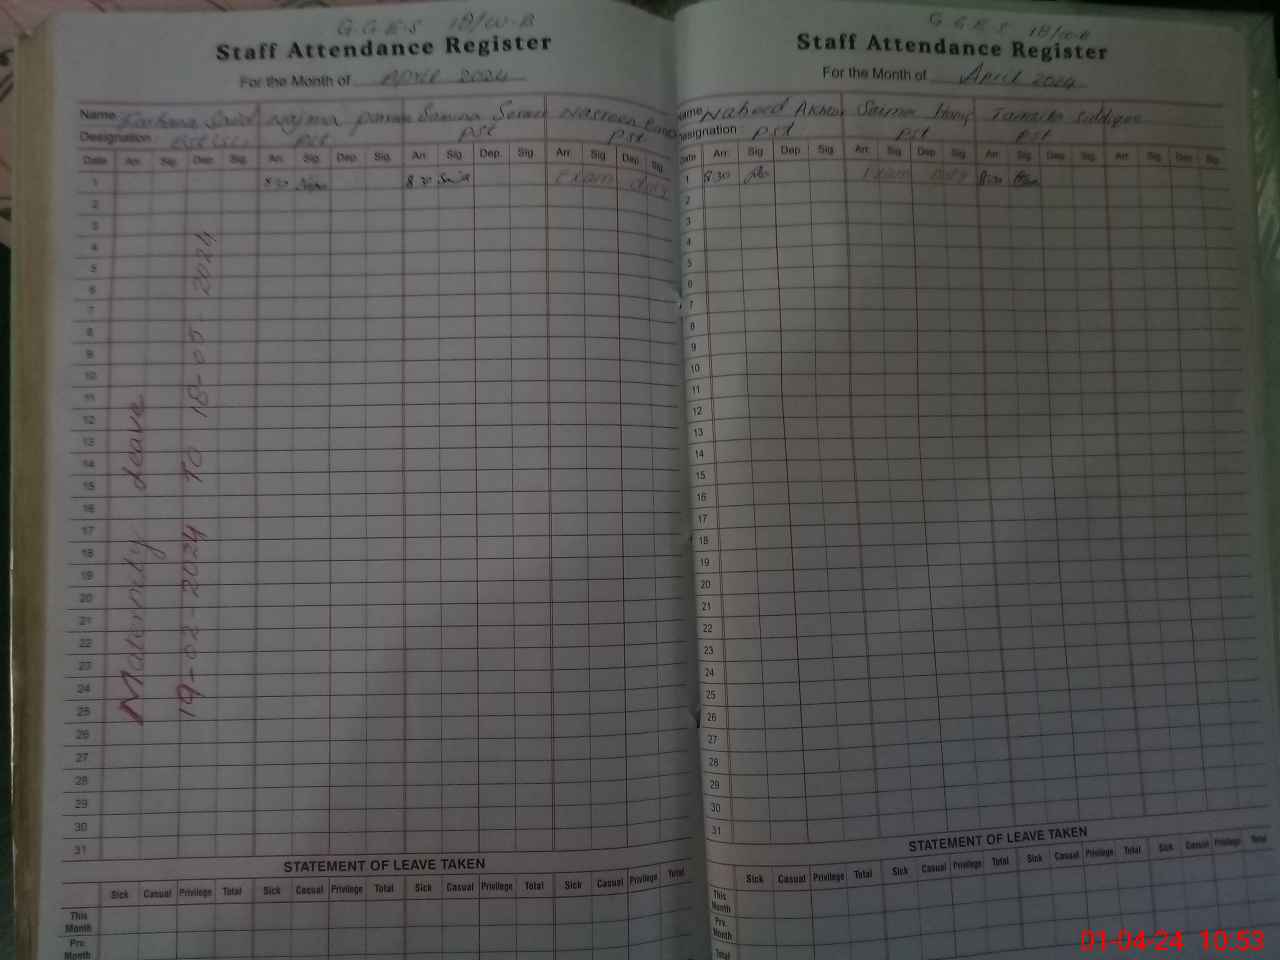 G.G.E.S 18/W-B
Staff Attendance Register
For the Month of April 2024
Name Farhana Saeed Najma Samina Nasreen
Designation PST PST PST
Date Arr. Sig. Dep. Sig. Arr. Sig. Dep. Sig. Arr. Sig. Dep. Sig. Arr. Sig. Dep. Sig.
1 8.30 8.30 Exam duty
2
3
4
5
6
7
8
9
10
11
12
13
14
15
16
17
18
19
20
21
22
23
24
25
26
27
28
29
30
31
Maternity Leave
19-02-2024 TO 18-05-2024
STATEMENT OF LEAVE TAKEN
Sick Casual Privilege Total Sick Casual Privilege Total Sick Casual Privilege Total Sick Casual Privilege Total
This Month
Prv. Month
G.G.E.S 18/W-B
Staff Attendance Register
For the Month of April 2024
Name Naheed Akhtar Saima Hanif Tanzila Siddique
Designation PST PST PST
Date Arr. Sig. Dep. Sig. Arr. Sig. Dep. Sig. Arr. Sig. Dep. Sig. Arr. Sig. Dep. Sig.
1 8.30 Exam Duty 8:30
2
3
4
5
6
7
8
9
10
11
12
13
14
15
16
17
18
19
20
21
22
23
24
25
26
27
28
29
30
31
STATEMENT OF LEAVE TAKEN
Sick Casual Privilege Total Sick Casual Privilege Total Sick Casual Privilege Total
This Month
Prv. Month
Total
01-04-24 10:53